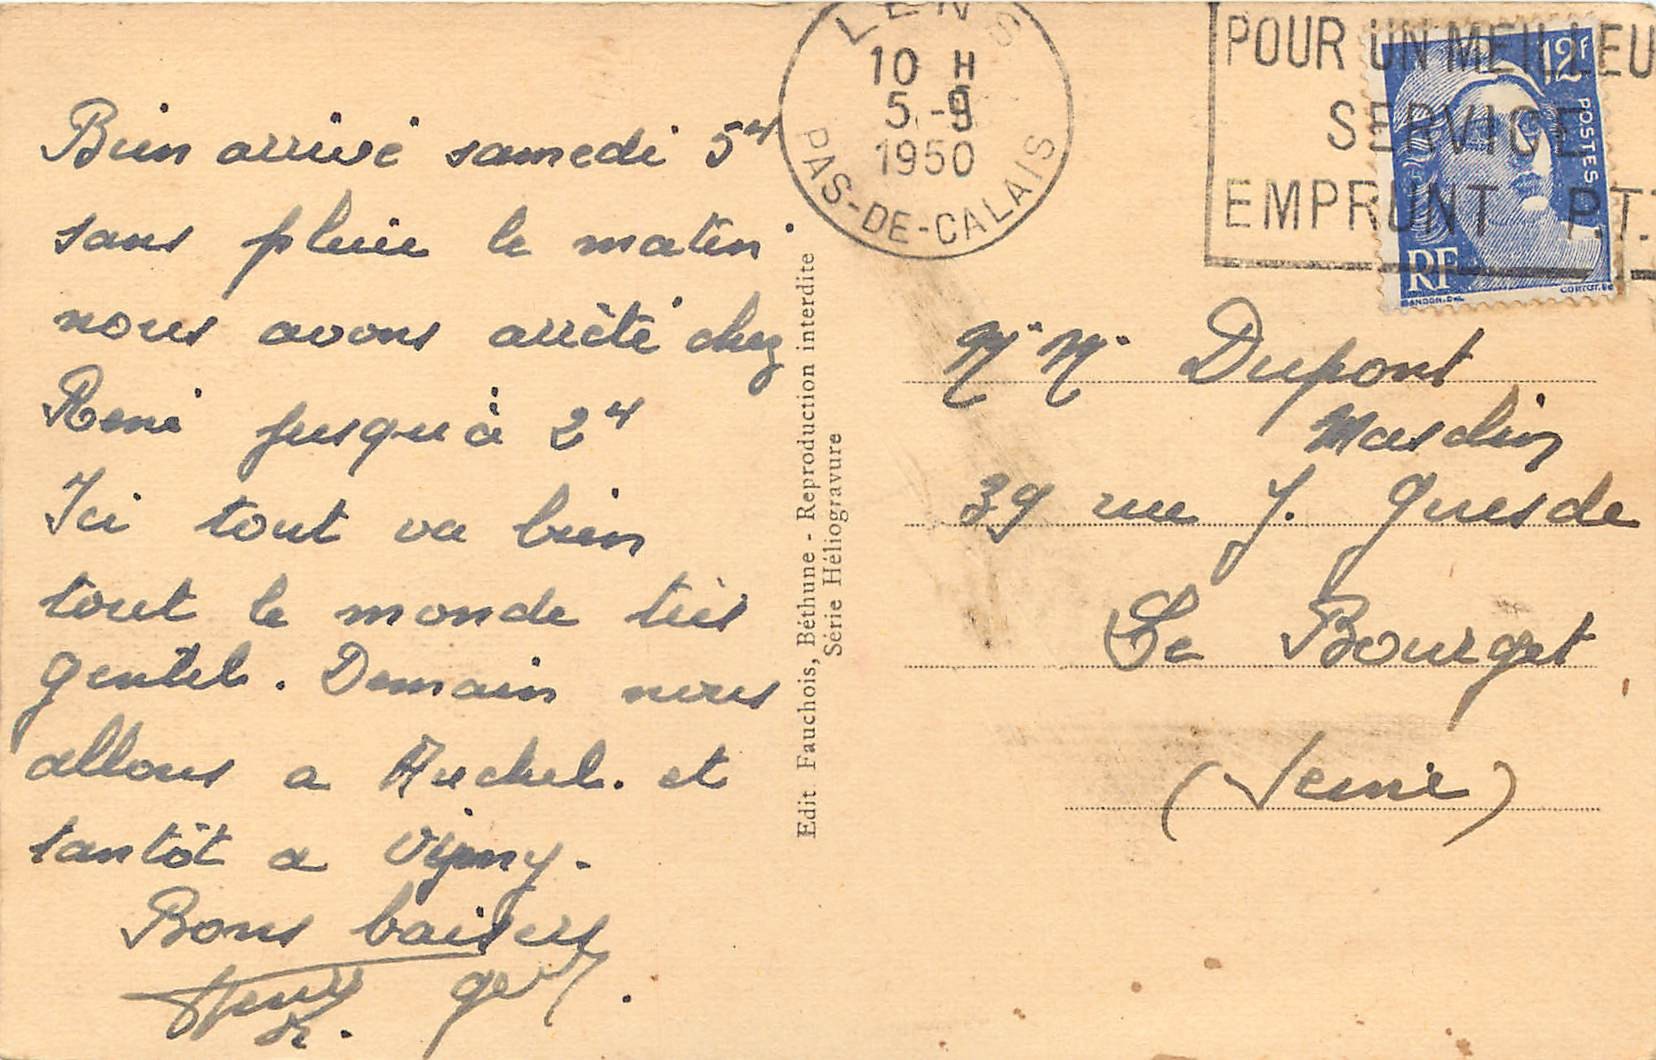 Bien arrivé samedi 5H
sans pluie le matin
nous avons arrêté chez
René jusqu'à 2H
Ici tout va bien
tout le monde très
gentil. Demain nous
allons a Auchel. et
tantôt a Vimy.
Bons baisers
LENS
10 H
5 -9
1950
PAS-DE-CALAIS
POUR UN MEILLEU
SERVICE
EMPRUNT P.T.
12F
POSTES
RF
GANDON.DEL
CORTOT.SC
Edit Fauchois, Béthune - Reproduction interdite
Série Héliogravure
Mr Me Dupont
39 rue J. Guesde
Le Bourget
(Seine)